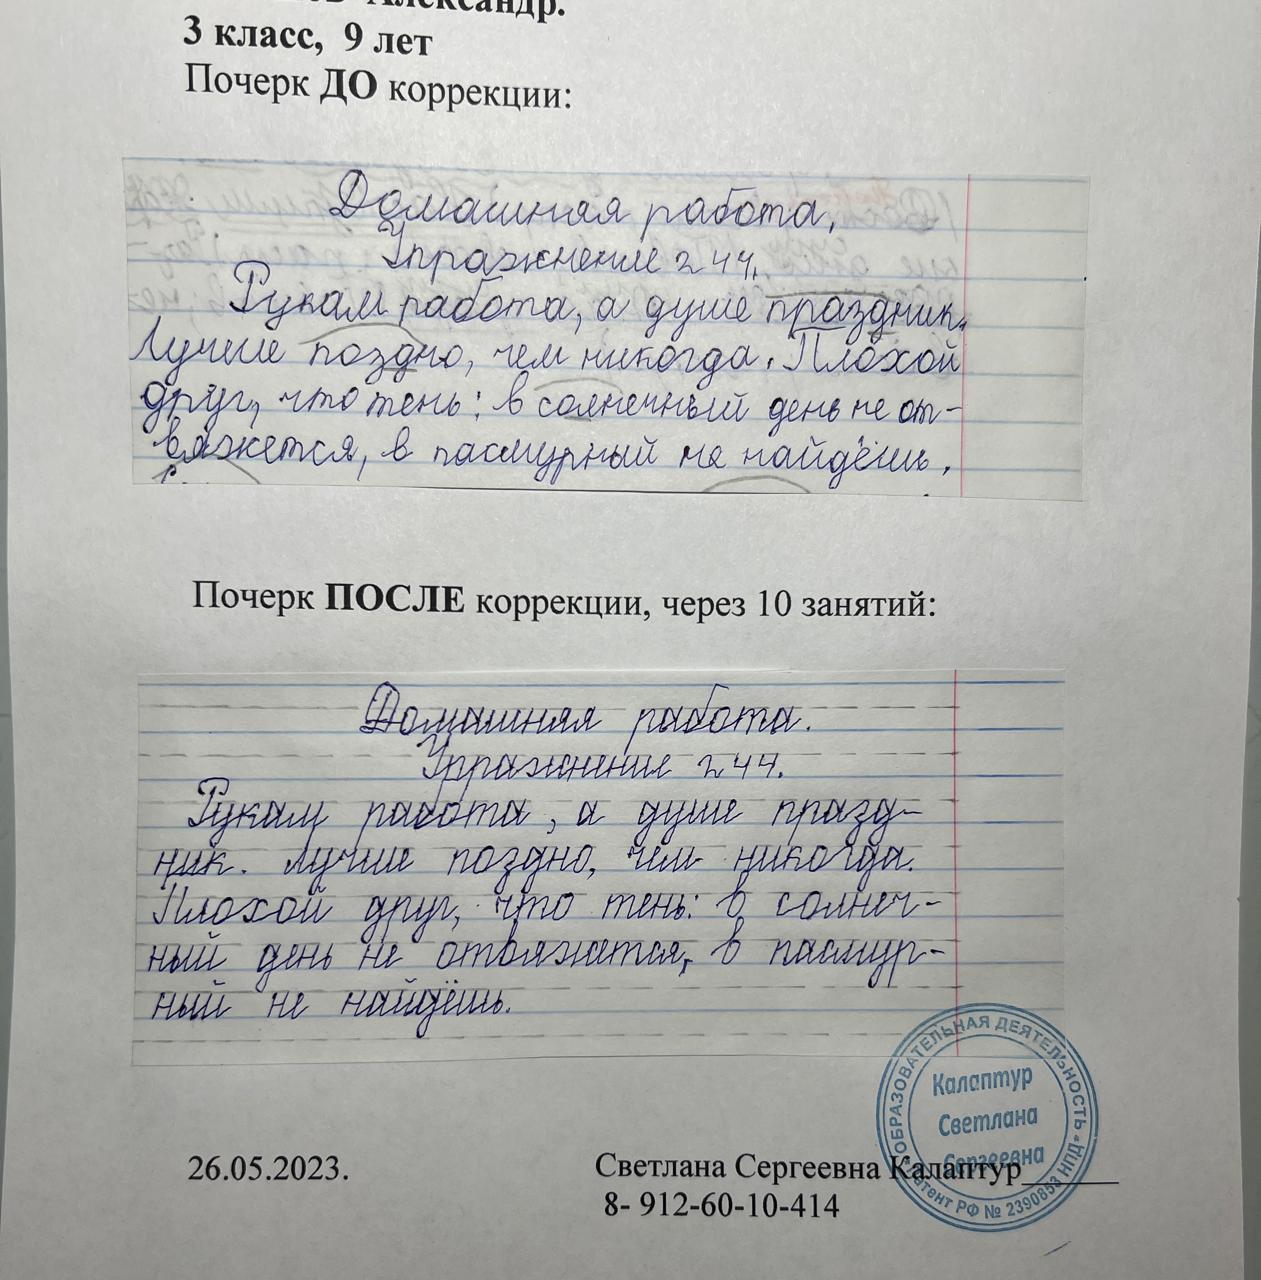 Александр.
3 класс, 9 лет
Почерк ДО коррекции:
Домашняя работа.
Упражнение 244.
Рукам работа, а душе праздник.
Лучше поздно, чем никогда. Плохой
друг, что тень: в солнечный день не от-
вяжется, в пасмурный не найдёшь.
Почерк ПОСЛЕ коррекции, через 10 занятий:
Домашняя работа.
Упражнение 244.
Рукам работа, а душе празд-
ник. Лучше поздно, чем никогда.
Плохой друг, что тень: в солнеч-
ный день не отвяжатся, в пасмур-
ный не найдёшь.
ОБРАЗОВАТЕЛЬНАЯ ДЕЯТЕЛЬНОСТЬ
Калаптур
Светлана
Сергеевна
Патент РФ № 2390853 НПД
26.05.2023.
Светлана Сергеевна Калаптур______
8- 912-60-10-414